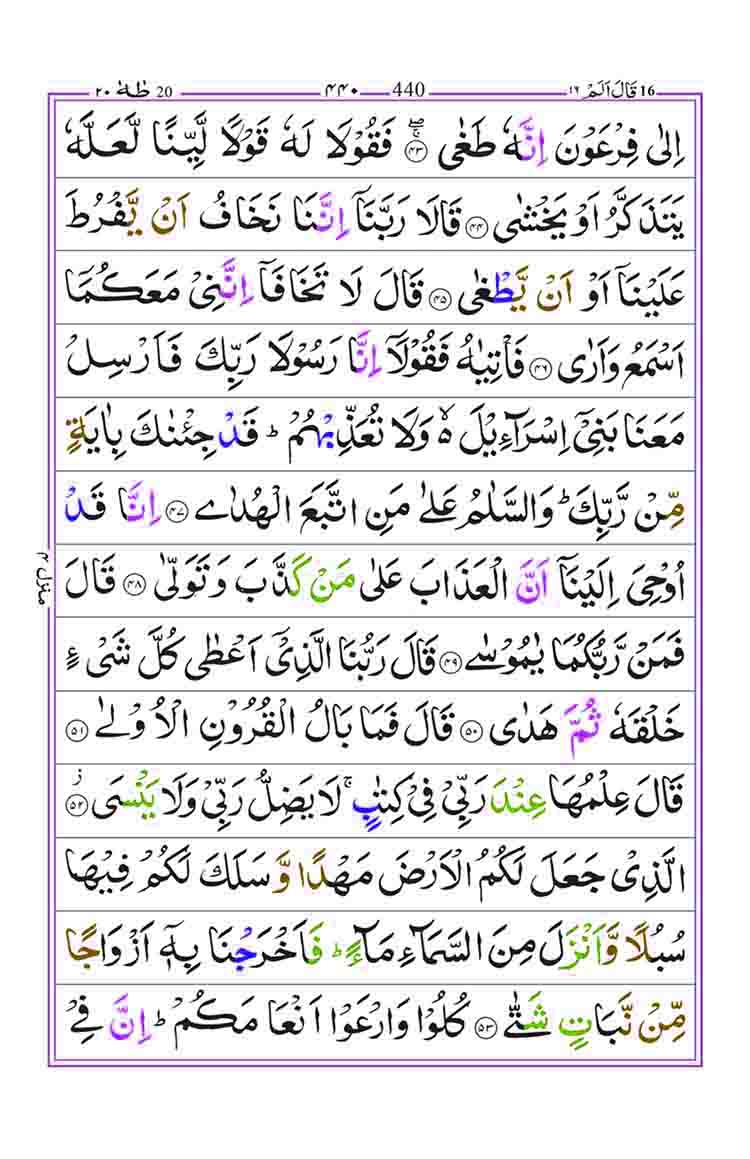 20 طٰهٰ ٢٠ 440 ٤٤٠ 16 قَالَ اَلَمْ ١٦
اِلٰى فِرْعَوْنَ اِنَّهٗ طَغٰى ۖۚ ﴿٤٣﴾ فَقُوْلَا لَهٗ قَوْلًا لَّيِّنًا لَّعَلَّهٗ
يَتَذَكَّرُ اَوْ يَخْشٰى ﴿٤٤﴾ قَالَا رَبَّنَاۤ اِنَّنَا نَخَافُ اَنْ يَّفْرُطَ
عَلَيْنَاۤ اَوْ اَنْ يَّطْغٰى ﴿٤٥﴾ قَالَ لَا تَخَافَاۤ اِنَّنِىْ مَعَكُمَا
اَسْمَعُ وَاَرٰى ﴿٤٦﴾ فَاْتِيٰهُ فَقُوْلَاۤ اِنَّا رَسُوْلَا رَبِّكَ فَاَرْسِلْ
مَعَنَا بَنِىْۤ اِسْرَآءِيْلَ ۙ وَلَا تُعَذِّبْهُمْ ؕ قَدْ جِئْنٰكَ بِاٰيَةٍ
مِّنْ رَّبِّكَ ؕ وَالسَّلٰمُ عَلٰى مَنِ اتَّبَعَ الْهُدٰى ﴿٤٧﴾ اِنَّا قَدْ
اُوْحِىَ اِلَيْنَاۤ اَنَّ الْعَذَابَ عَلٰى مَنْ كَذَّبَ وَتَوَلّٰى ﴿٤٨﴾ قَالَ
فَمَنْ رَّبُّكُمَا يٰمُوْسٰى ﴿٤٩﴾ قَالَ رَبُّنَا الَّذِىْۤ اَعْطٰى كُلَّ شَىْءٍ
خَلْقَهٗ ثُمَّ هَدٰى ﴿٥٠﴾ قَالَ فَمَا بَالُ الْقُرُوْنِ الْاُوْلٰى ﴿٥١﴾
قَالَ عِلْمُهَا عِنْدَ رَبِّىْ فِىْ كِتٰبٍ ۚ لَا يَضِلُّ رَبِّىْ وَلَا يَنْسَى ؗ ﴿٥٢﴾
الَّذِىْ جَعَلَ لَكُمُ الْاَرْضَ مَهْدًا وَّسَلَكَ لَكُمْ فِيْهَا
سُبُلًا وَّاَنْزَلَ مِنَ السَّمَآءِ مَآءً ؕ فَاَخْرَجْنَا بِهٖۤ اَزْوَاجًا
مِّنْ نَّبَاتٍ شَتّٰى ﴿٥٣﴾ كُلُوْا وَارْعَوْا اَنْعَامَكُمْ ؕ اِنَّ فِىْ
منزل ٤